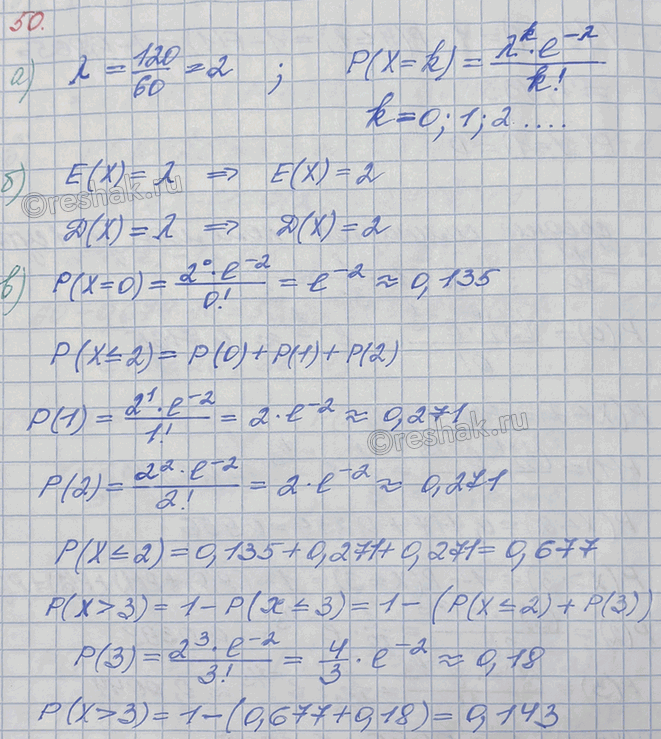 50.
а) λ = 120/60 = 2 ; P(X=k) = λ^k · e^-λ / k!
k=0; 1; 2 ....
б) E(X) = λ ⇒ E(X) = 2
©reshak.ru
Д(X) = λ ⇒ Д(X) = 2
в) P(X=0) = 2^0 · e^-2 / 0! = e^-2 ≈ 0,135
P(X≤2) = P(0) + P(1) + P(2)
P(1) = 2^1 · e^-2 / 1! = 2 · e^-2 ≈ 0,271
©reshak.ru
P(2) = 2^2 · e^-2 / 2! = 2 · e^-2 ≈ 0,271
P(X≤2) = 0,135 + 0,271 + 0,271 = 0,677
P(X>3) = 1 - P(X≤3) = 1 - (P(X≤2) + P(3))
P(3) = 2^3 · e^-2 / 3! = 4/3 · e^-2 ≈ 0,18
P(X>3) = 1 - (0,677 + 0,18) = 0,143